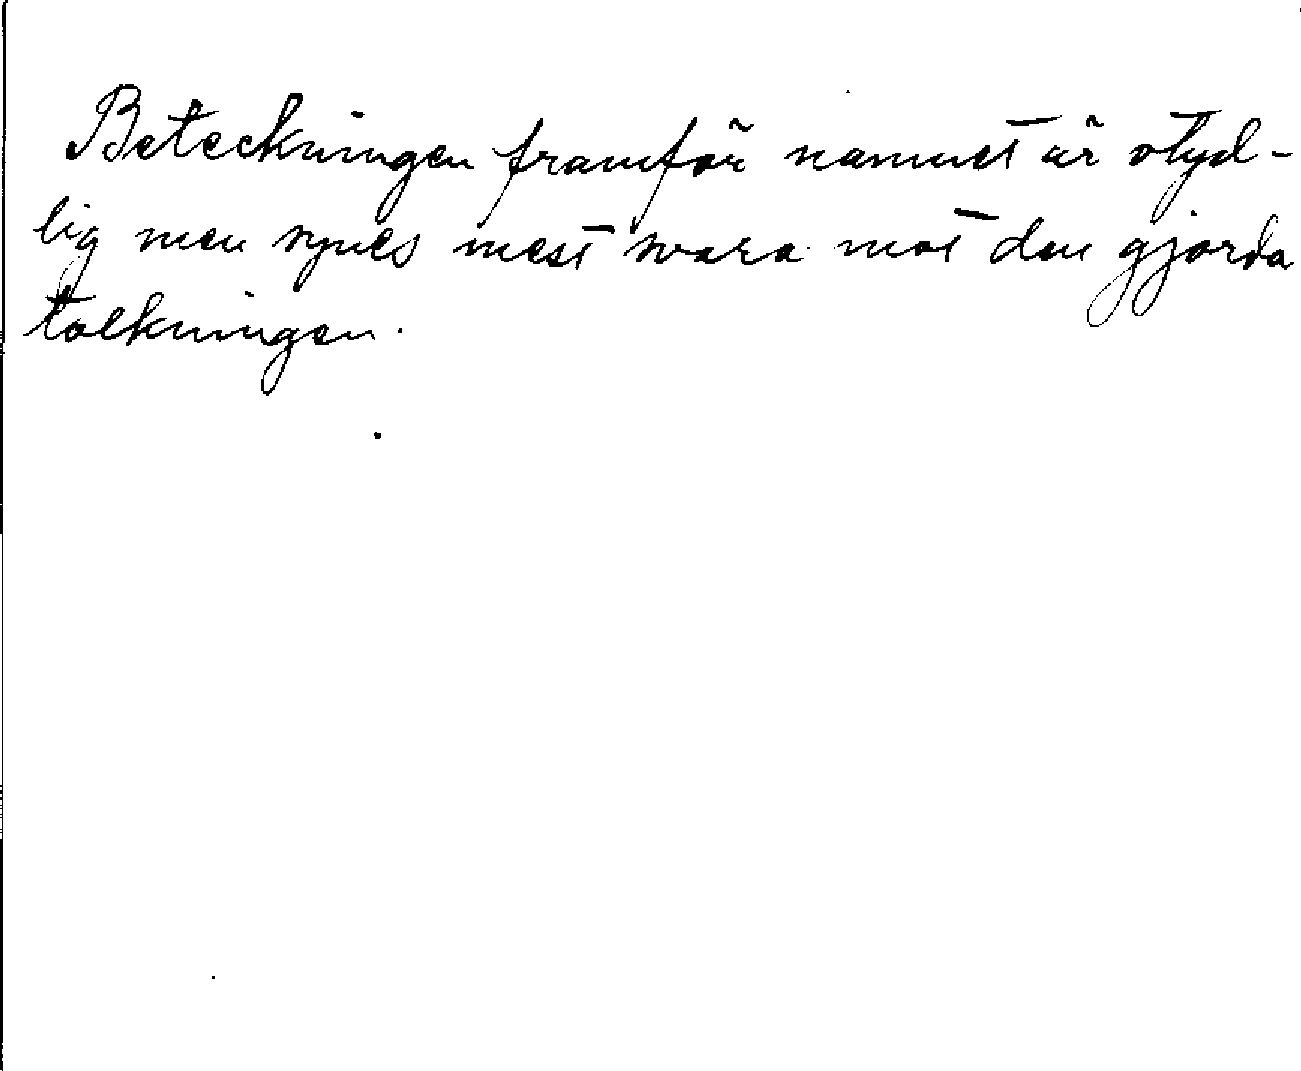 Beteckningen framför namnet är otyd-
lig men synes mest svara mot den gjorda
tolkningen.